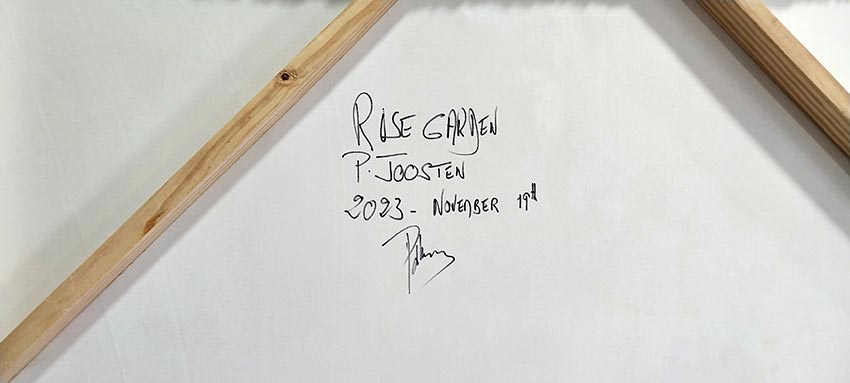 ROSE GARDEN
P. JOOSTEN
2023 - NOVEMBER 19th